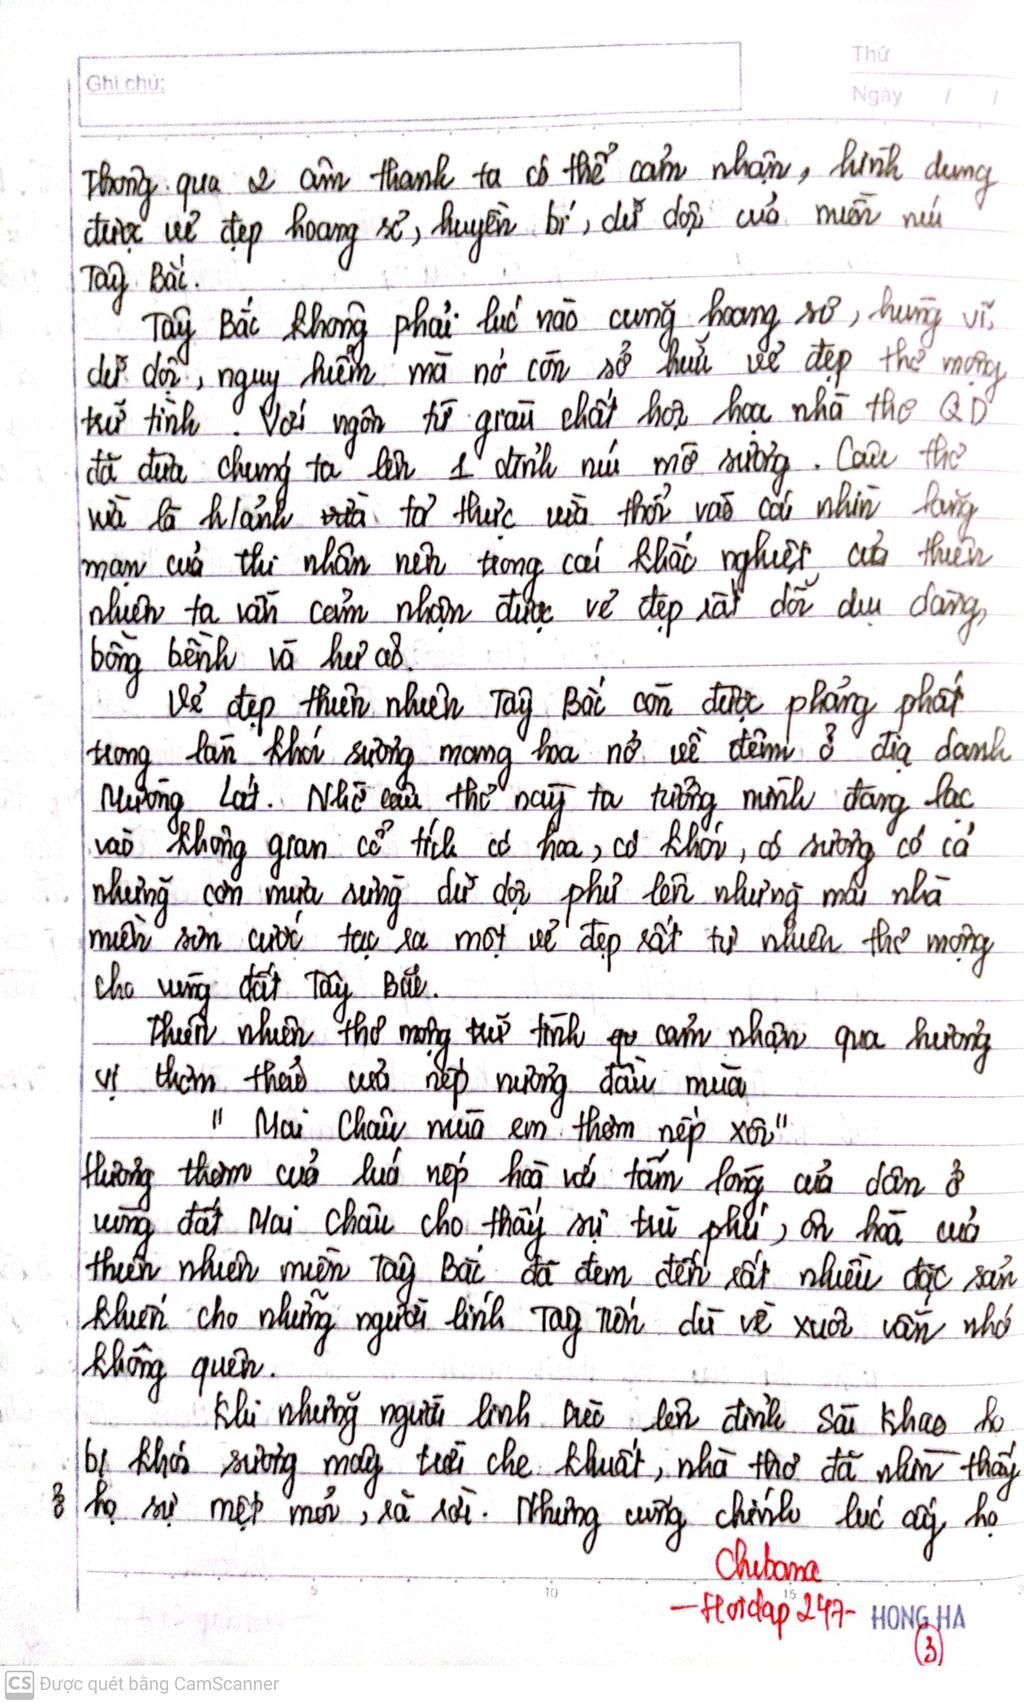 Ghi chú:
Thứ
Ngày / /
Thông qua 2 âm thanh ta có thể cảm nhận, hình dung
được vẻ đẹp hoang sơ, huyền bí, dữ dội của miền núi
Tây Bắc.
Tây Bắc không phải lúc nào cũng hoang sơ, hùng vĩ,
dữ dội, nguy hiểm mà nó còn sở hữu vẻ đẹp thơ mộng
trữ tình. Với ngôn từ giàu chất hội hoạ nhà thơ QD
đã đưa chúng ta lên 1 đỉnh núi mờ sương. Câu thơ
vừa là h/ảnh tả thực vừa thổi vào cái nhìn lãng
mạn của thi nhân nên trong cái khắc nghiệt của thiên
nhiên ta vẫn cảm nhận được vẻ đẹp rất đỗi dịu dàng,
bồng bềnh và hư ảo.
Vẻ đẹp thiên nhiên Tây Bắc còn được phảng phất
trong làn khói sương mang hoa nở về đêm ở địa danh
Mường Lát. Nhờ câu thơ này ta tưởng mình đang lạc
vào không gian cổ tích có hoa, có khói, có sương có cả
những cơn mưa rừng dữ dội phủ lên những mái nhà
miền sơn cước tạc ra một vẻ đẹp rất tự nhiên thơ mộng
cho vùng đất Tây Bắc.
Thiên nhiên thơ mộng trữ tình cảm nhận qua hương
vị thơm thảo của nếp nương đầu mùa
" Mai Châu mùa em thơm nếp xôi"
Hương thơm của lúa nếp hoà với tấm lòng của dân ở
vùng đất Mai Châu cho thấy sự trù phú, ôn hoà của
thiên nhiên miền Tây Bắc đã đem đến rất nhiều đặc sản
khiến cho những người lính Tây Tiến dù về xuôi vẫn nhớ
không quên.
Khi những người lính trèo lên đỉnh Sài Khao họ
bị khói sương mây trời che khuất, nhà thơ đã nhìn thấy
ở họ sự mệt mỏi, rã rời. Nhưng cũng chính lúc ấy, họ
Chibana
-Hoidap 247-
5 10 15 2
HONG HA
3
CS Được quét bằng CamScanner